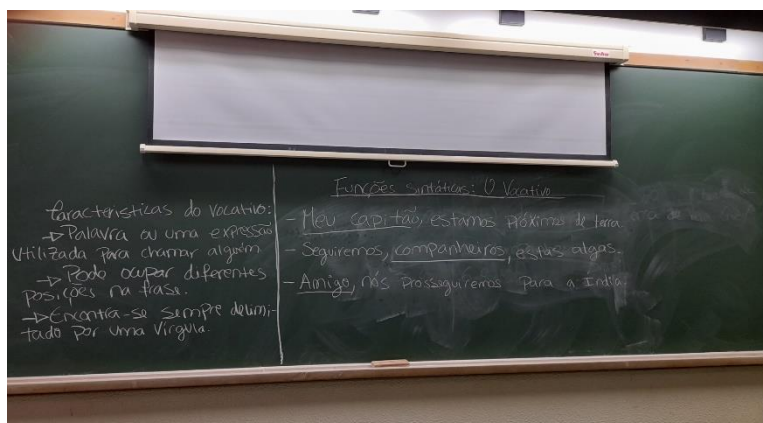 Funções sintáticas: O Vocativo
Características do vocativo:
→ Palavra ou uma expressão
utilizada para chamar alguém
→ Pode ocupar diferentes
posições na frase.
→ Encontra-se sempre delimi-
tado por uma vírgula.
- Meu capitão, estamos próximo de terra.
- Seguiremos, companheiros, estas algas.
- Amigo, nós prosseguiremos para a Índia.